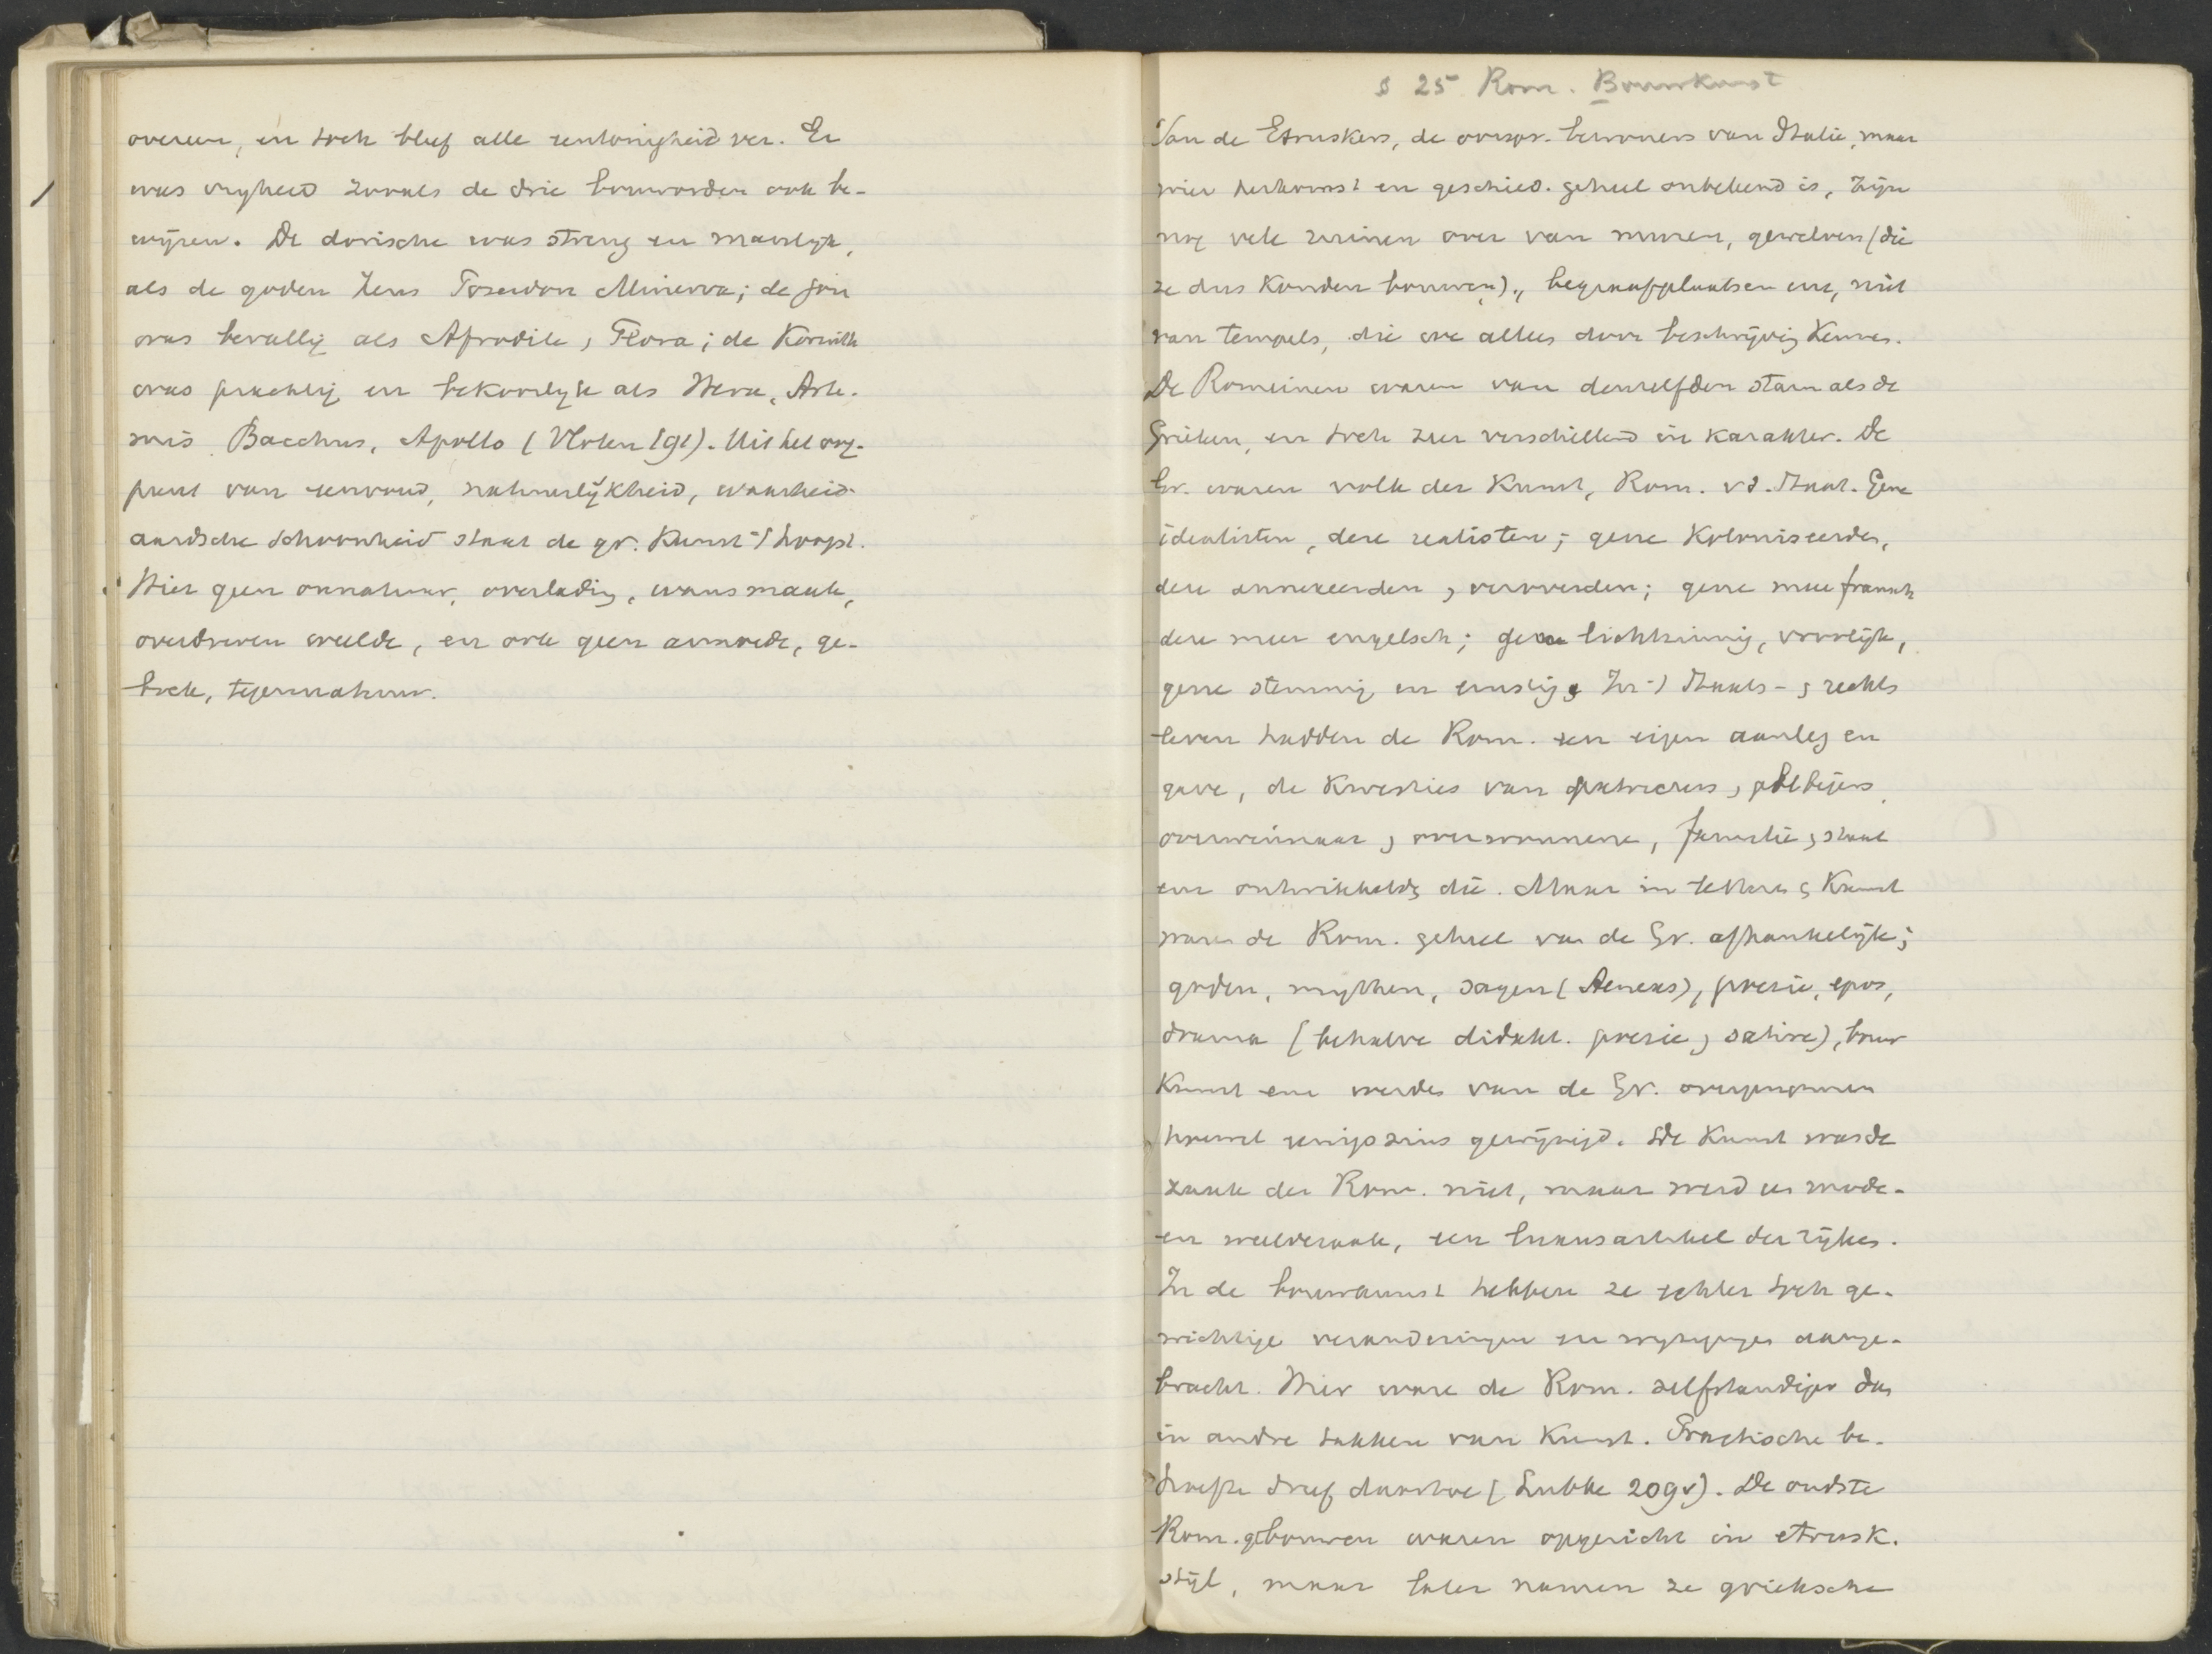 overeen, en toch bleef alle eentonigheid ver. Er
was vrijheid zooals de drie bouworden ook be-
wijzen. De dorische was streng en manlijk,
als de goden Zeus Poseidon Minerva; de Jon
was bevallig als Afrodite, Flora; de Korinth
was prachtig en bekoorlijk als Hera, Arte-
mis Bacchus, Apollo (Vloten 191). Uit het oog-
punt van eenvoud, natuurlijkheid, waarheid
aardsche schoonheid staat de gr. Kunst 't hoogst.
Hier geen onnatuur, overlading, wansmaak,
overdreven weelde, en ook geen armoede, ge-
brek, tegennatuur.
§ 25 Rom. Bouwkunst
Van de Etruskers, de oorspr. bewoners van Italie, maar
wier herkomst en geschied. geheel onbekend is, zijn
nog vele ruinen over van muren, gewelven (die
ze dus konden bouwen), begraafplaatsen enz, niet
van tempels, die we alleen door beschrijving kennen.
De Romeinen waren van denzelfden stam als de
Grieken, en toch zeer verschillend in karakter. De
Gr. waren volk der Kunst, Rom. v.d. Staat. Gene
idealisten, deze realisten; gene koloniseerden,
deze annexeerden, veroverden; gene meer fransch
deze meer engelsch; gene lichtzinnig, vroolijk,
gene stemmig en ernstig. In 't Staats- , rechts
leven hadden de Rom. een eigen aanleg en
gave, de kwesties van patriciers, plebejers
overwinnaar, overwonnene, familie, staat
enz ontwikkelde die. Maar in letteren, Kunst
waren de Rom. geheel van de Gr. afhankelijk;
goden, mythen, sagen (Aeneas), poezie, epos,
drama (behalve didakt. poezie, satire), bouw
Kunst enz werden van de Gr. overgenomen
hoewel eenigszins gewijzigd. De Kunst was de
zaak der Rom. niet, maar werd een mode-
en weeldezaak, een luxusartikel der rijken.
In de bouwkunst hebben ze echter toch ge-
wichtige veranderingen en wijzigingen aange-
bracht. Hier ware de Rom. zelfstandiger dan
in andre takken van Kunst. Practische be-
hoefte dreef daartoe (Lubke 209v). De oudste
Rom. gebouwen waren opgericht in etrusk.
stijl, maar later namen ze grieksche